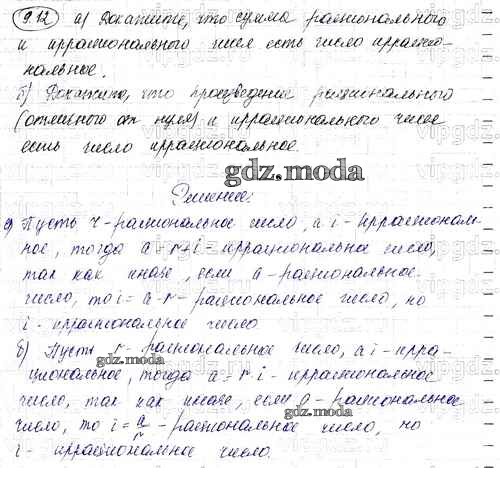 9.12 а) Докажите, что сумма рационального
и иррационального чисел есть число иррацио-
нальное.
б) Докажите, что произведение рационального
(отличного от нуля) и иррационального чисел
есть число иррациональное.
gdz.moda
Решение:
а) Пусть r - рациональное число, а i - иррациональ-
ное, тогда a = r + i - иррациональное число,
так как иначе, если a - рациональное
число, то i = a - r - рациональное число, но
i - иррациональное число.
gdz.moda
gdz.moda
б) Пусть r - рациональное число, а i - ирра-
циональное, тогда a = r · i - иррациональное
число, так как иначе, если a - рациональное
число, то i = a/r - рациональное число, но
i - иррациональное число.
gdz.moda